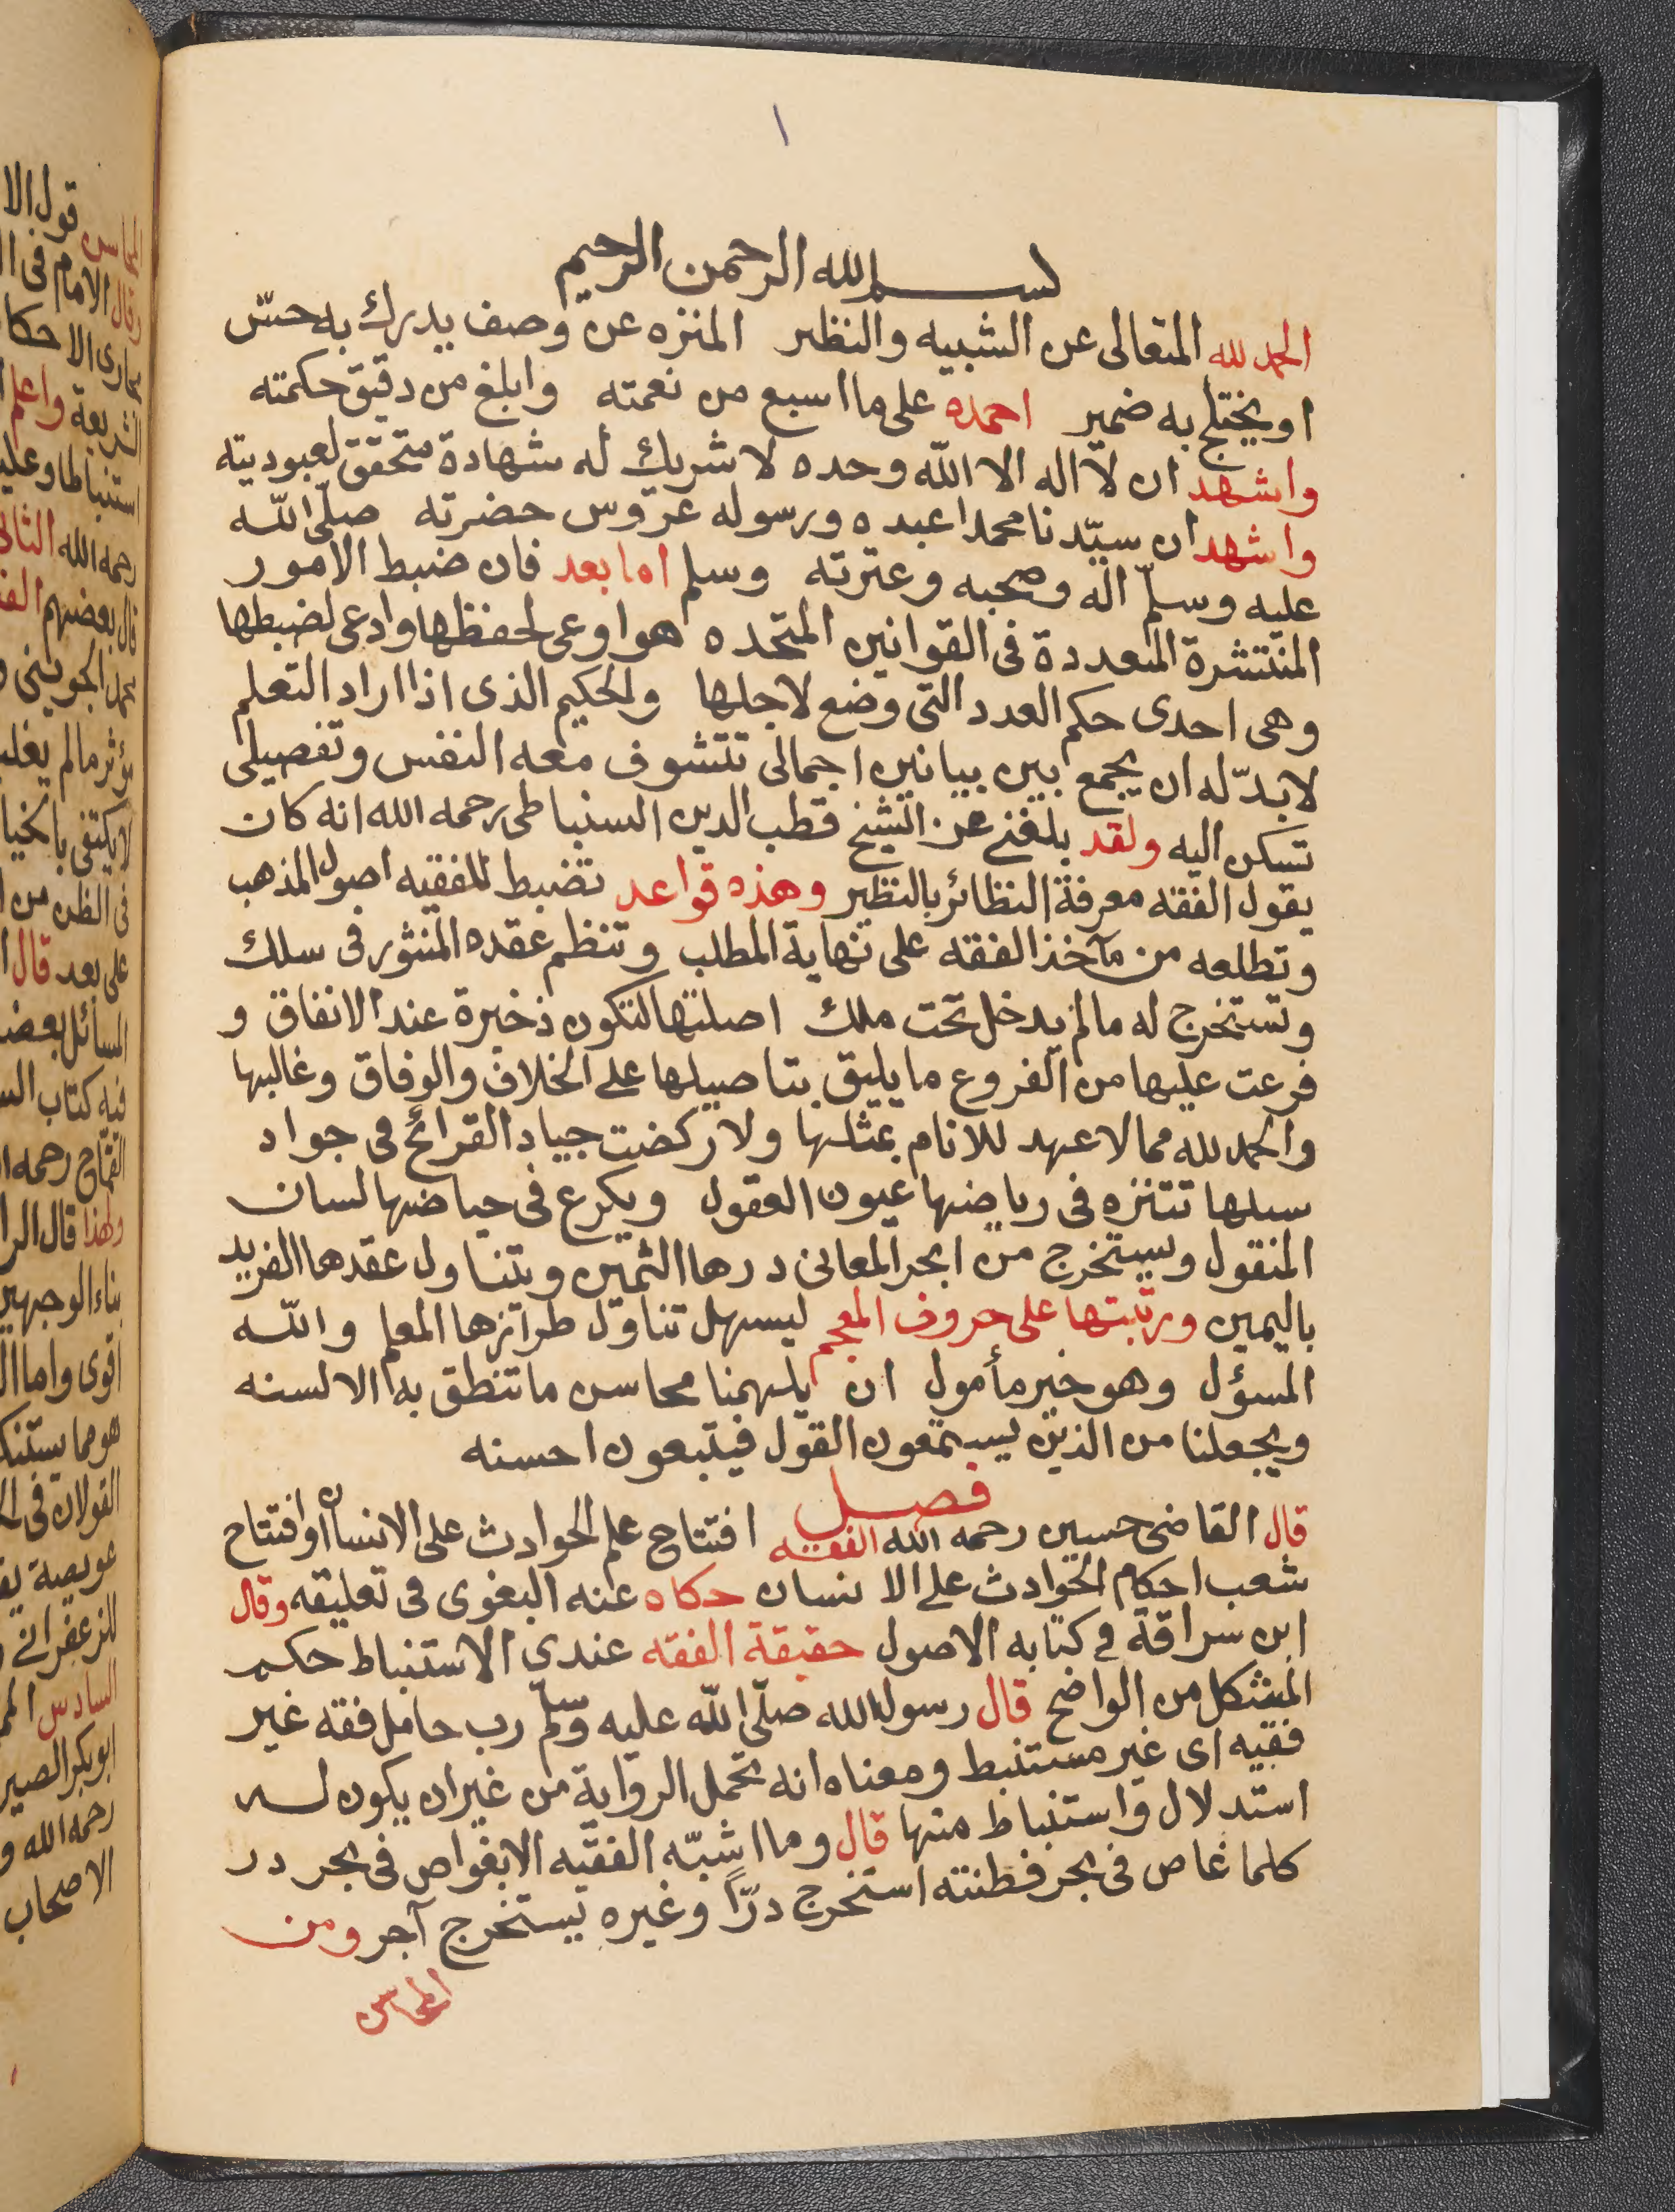 ١
بسم الله الرحمن الرحيم
الحمد لله المتعالى عن الشبيه والنظير المنزه عن وصف يدرك به حسّ
او يختلج به ضمير احمده على ما اسبع من نعمته وابلغ من دقيق حكمته
واشهد ان لا اله الا الله وحده لا شريك له شهادة متحقق لعبوديته
واشهد ان سيّدنا محمدا عبده ورسوله عروس حضرته صلّى الله
عليه وسلم اله وصحبه وعترته وسلم اما بعد فان ضبط الامور
المنتشرة المتعددة فى القوانين المتحده هو اوعى لحفظها وادعى لضبطها
وهى احدى حكم العدد التى وضع لاجلها ولحكيم الذى اذا اراد التعلم
لابدّ له ان يجمع بين بيانين اجمالى تتشوف معه النفس وتفصيلى
تسكن اليه ولقد بلغنى عن الشيخ قطب الدين السنباطى رحمه الله انه كان
يقول الفقه معرفة النظائر بالنظير وهذه قواعد تضبط للفقيه اصول المذهب
وتطلعه من مآخذ الفقه على نهاية المطلب وتنظم عقده المنثور فى سلك
وتستخرج له مالم يدخل تحت ملك اصلتها لتكون ذخيرة عند الانفاق و
فرعت عليها من الفروع ما يليق بتاصيلها على الخلاف والوفاق وغالبها
والحمد لله مما لا عهد للانام بمثلها ولا ركضت جياد القرائح فى جواد
سبلها تتنزه فى رياضها عيون العقول ويكرع فى حياضها لسان
المنقول ويستخرج من ابحر المعانى دررها الثمين ويتناول عقدها الفريد
باليمين ورتبتها على حروف المعجم ليسهل تناول طرازها المعلم والله
المسؤل وهو خير مأمول ان يلهمنا محاسن ما تنطق به الالسنه
ويجعلنا من الذين يستمعون القول فيتبعون احسنه
فصل
قال القاضى حسين رحمه الله الفقه افتتاح علم الحوادث على الانسان او افتتاح
شعب احكام الحوادث على الانسان حكاه عنه البغوى فى تعليقه وقال
ابن سراقة فى كتابه الاصول حقيقة الفقه عندى الاستنباط حكم
المشكل من الواضح قال رسول الله صلّى الله عليه وسلم رب حامل فقه غير
فقيه اى غير مستنبط ومعناه انه يحمل الرواية من غير ان يكون له
استدلال واستنباط منها قال وما اشبّه الفقيه الا بغواص فى بحر در
كلما غاص فى بحر فطنته استخرج درّاً وغيره يستخرج آجر ومن
المحاسن